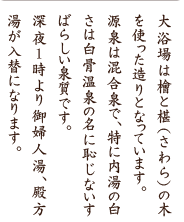 大浴場は檜と椹（さわら）の木
を使った造りとなっています。
源泉は混合泉で、特に内湯の白
さは白骨温泉の名に恥じないす
ばらしい泉質です。
深夜１時より御婦人湯、殿方
湯が入替になります。